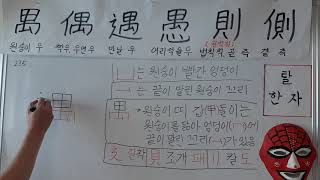 禺 偶 遇 愚 則 側
원숭이 우 짝우 우연우 만날 우 어리석을우 법칙칙, 곧 즉 곁 측
235
는 원숭이 빨간 엉덩이
는 끝이 말린 원숭이 꼬리
탈
한자
禺
원숭이 띠 갑(甲)돌이는
원숭이를 닮아 엉덩이
끝이 말린 꼬리 가 있음
貝 조개 패 刂 칼 도